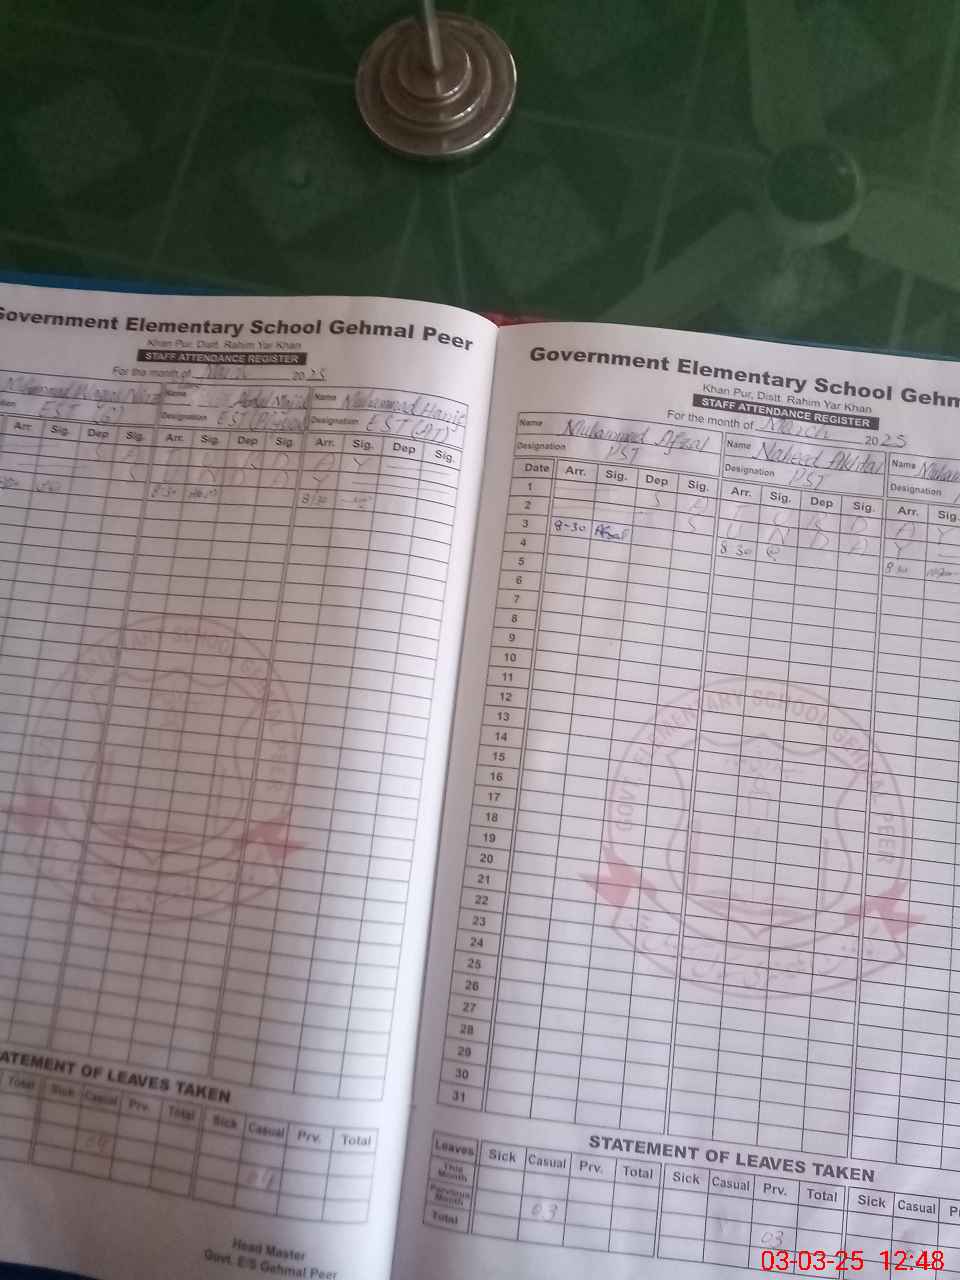 Government Elementary School Gehmal Peer
Khan Pur, Distt. Rahim Yar Khan
STAFF ATTENDANCE REGISTER
For the month of March 2025
Name Abdul Majid Name Muhammad Hanif
Designation EST Designation EST (AT)
Arr. Sig. Dep Sig. Arr. Sig. Dep Sig. Arr. Sig. Dep Sig.
8:30
8:30
STATEMENT OF LEAVES TAKEN
Total Sick Casual Prv. Total Sick Casual Prv. Total
04
Head Master
Govt. E/S Gehmal Peer
Government Elementary School Gehm
Khan Pur, Distt. Rahim Yar Khan
STAFF ATTENDANCE REGISTER
For the month of March 2025
Name Muhammad Afzal Name Naheed Akhtar Name Muham
Designation PST Designation PST Designation
Date Arr. Sig. Dep Sig. Arr. Sig. Dep Sig. Arr. Sig.
1 S A T U R D A Y
2 S U N D A Y
3 8-30 Afzal 8 30 8 30
4
5
6
7
8
9
10
11
12
13
14
15
16
17
18
19
20
21
22
23
24
25
26
27
28
29
30
31
GOVT. ELEMENTARY SCHOOL GEHMAL PEER
STATEMENT OF LEAVES TAKEN
Leaves Sick Casual Prv. Total Sick Casual Prv. Total Sick Casual P
This Month
Previous Month 03 03
Total
03-03-25 12:48